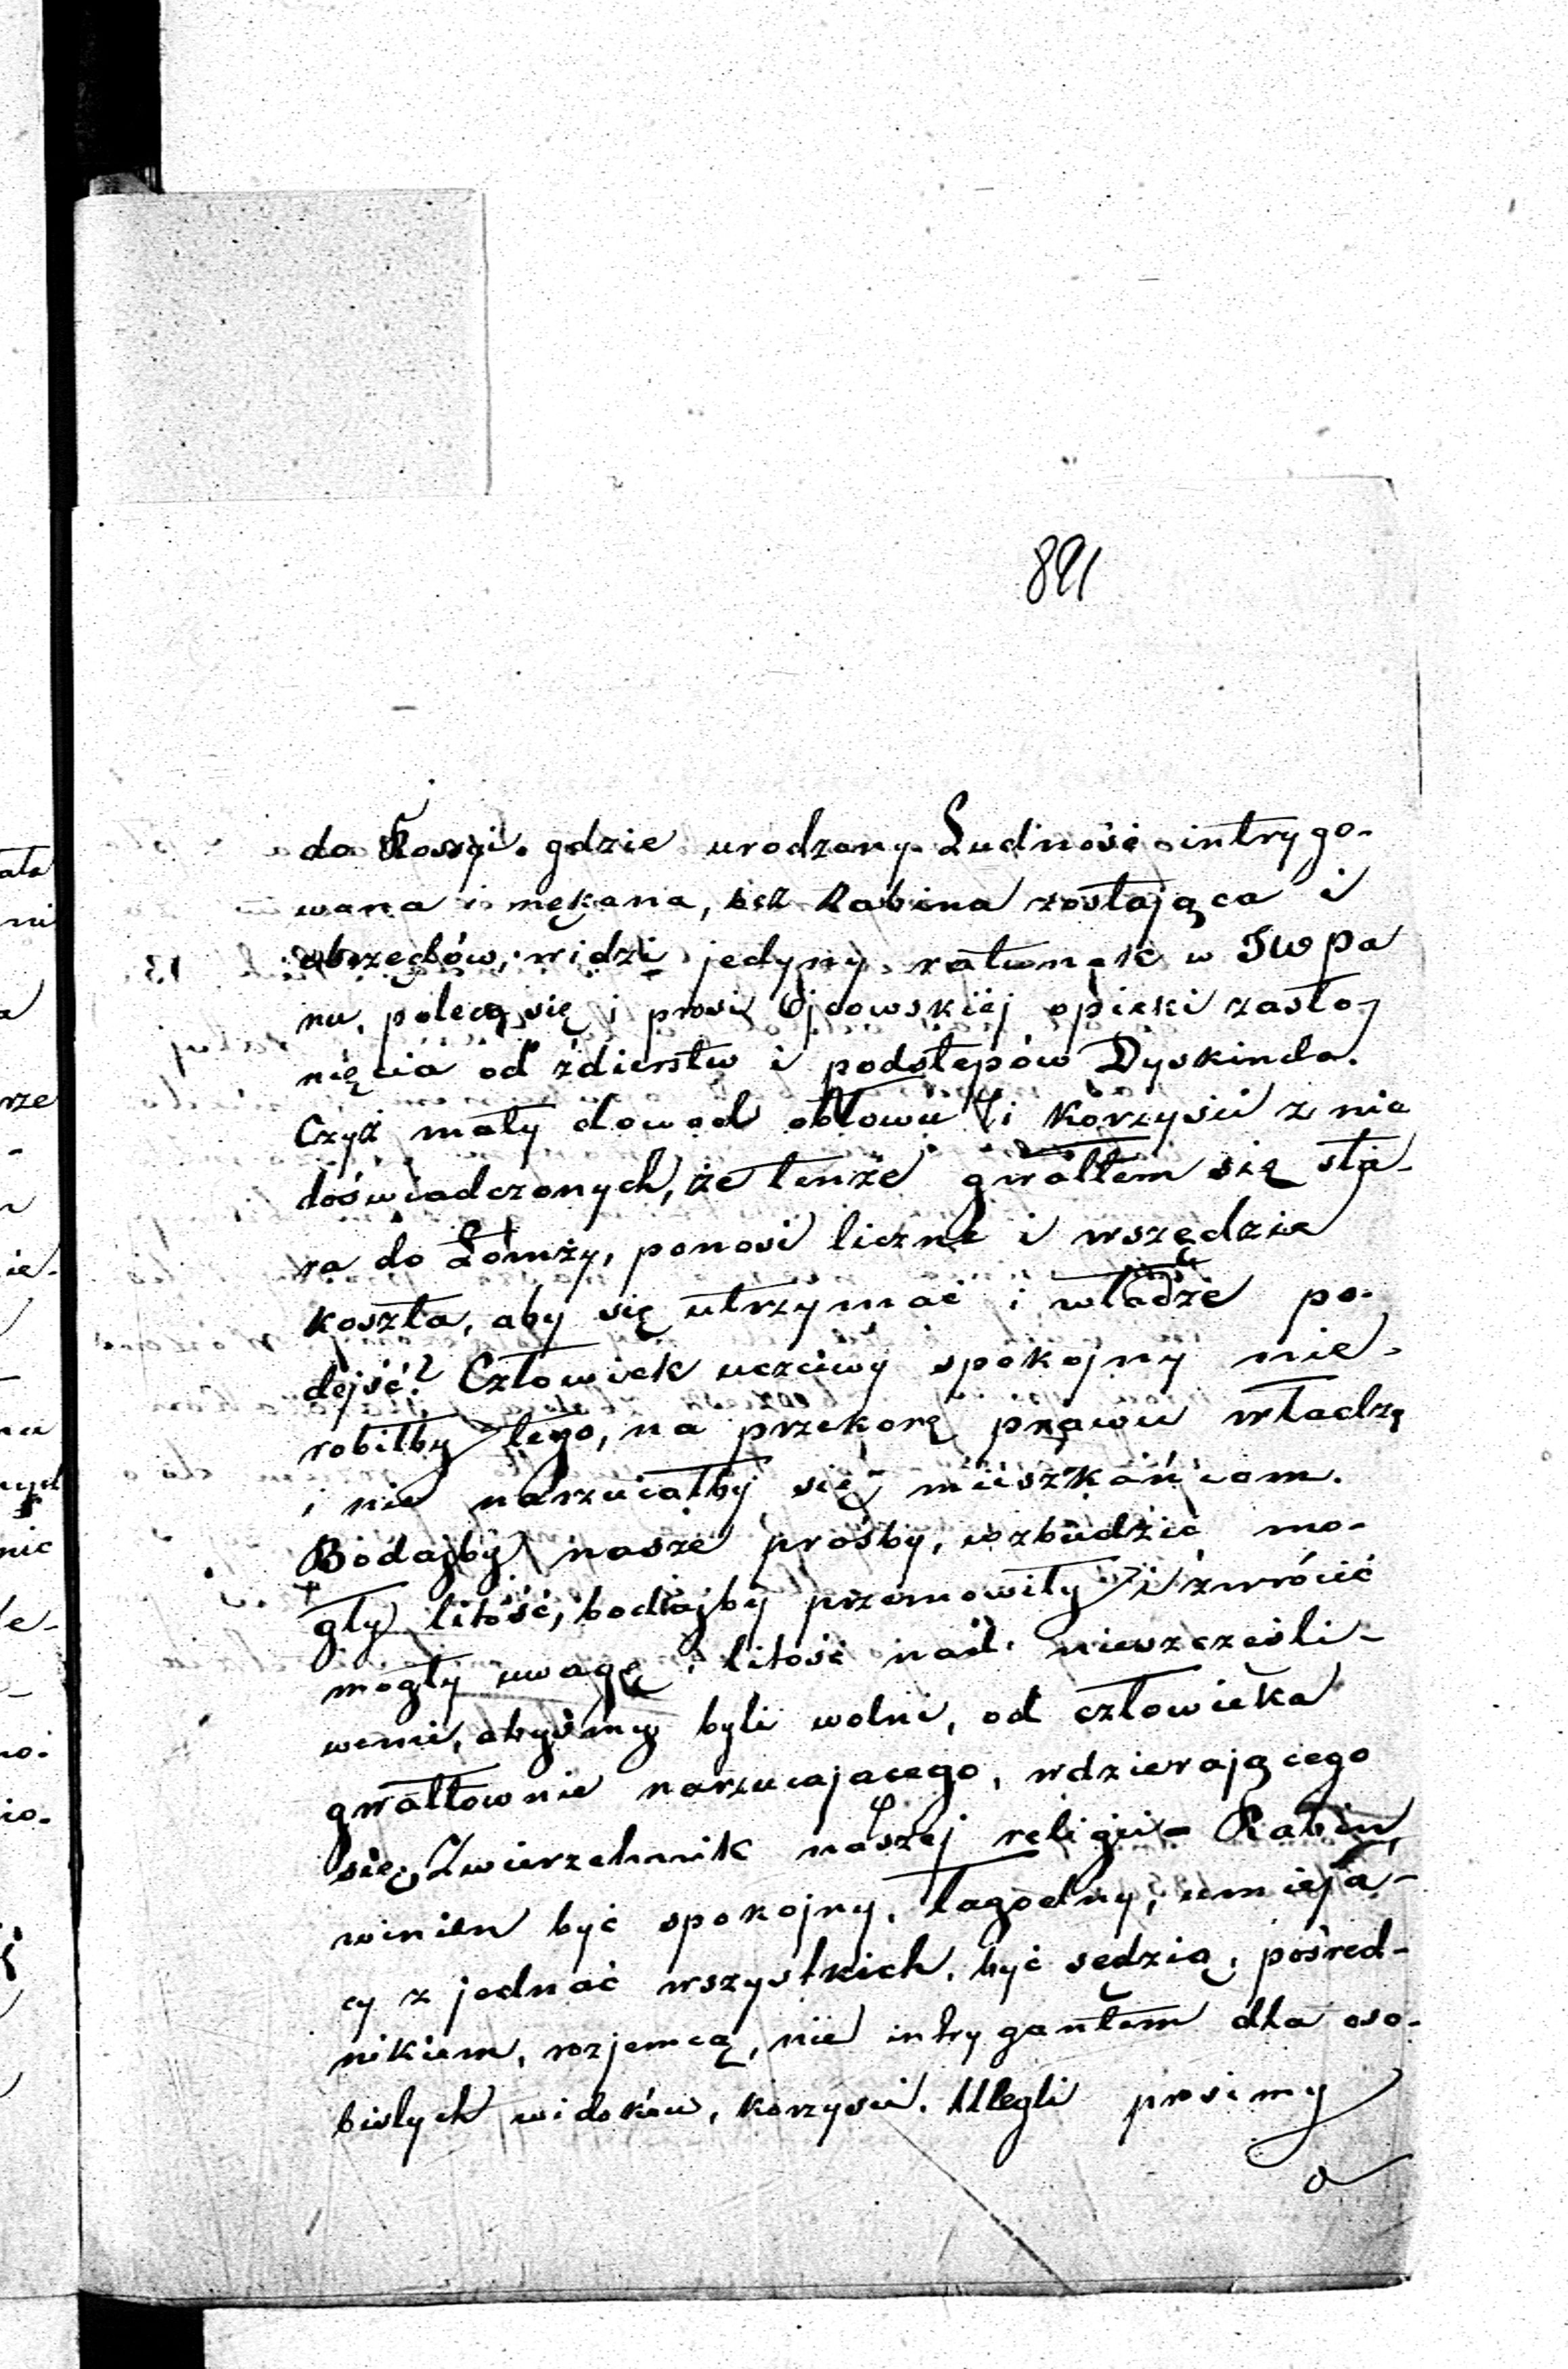 891
do Rossyi. gdzie urodzony. Ludność intrygo-
wana i nękana, bez Rabina zostająca i
obrzędów, widzi jedyny ratunek w JWPa
nu, poleca się i prosi Ojcowskiej opieki zasło-
nięcia od zdierstw i podstępów Dyskinda.
Czyż mały dowód obłowu i korzyści z nie
doświadczonych, że tenże gwałtem się sta-
ra do Łomży, ponosi liczne i wszędzie
koszta, aby się utrzymać i władze po-
dejść? Człowiek uczciwy spokojny nie-
robiłby tego, na przekorę prawu władzę
i nie narzucałby się mieszkańcom.
Bodajby nasze prośby, wzbudzić mo-
gły litość, bodajby przemowiły i zwrócić
mogły uwagę i litość nad nieszczęśli-
wemi, abyśmy byli wolni, od człowieka
gwałtownie narzucajacego, wdzierającego
się. Zwierzchnik naszej religii - Rabin,
winien być spokojny, łagodny, umieją-
cy z jednać wszystkich, być sędzią, pośred-
nikiem, rozjemcą, nie intrygantem dla oso-
bistych widoków, korzyści. Ulegli prosimy
o